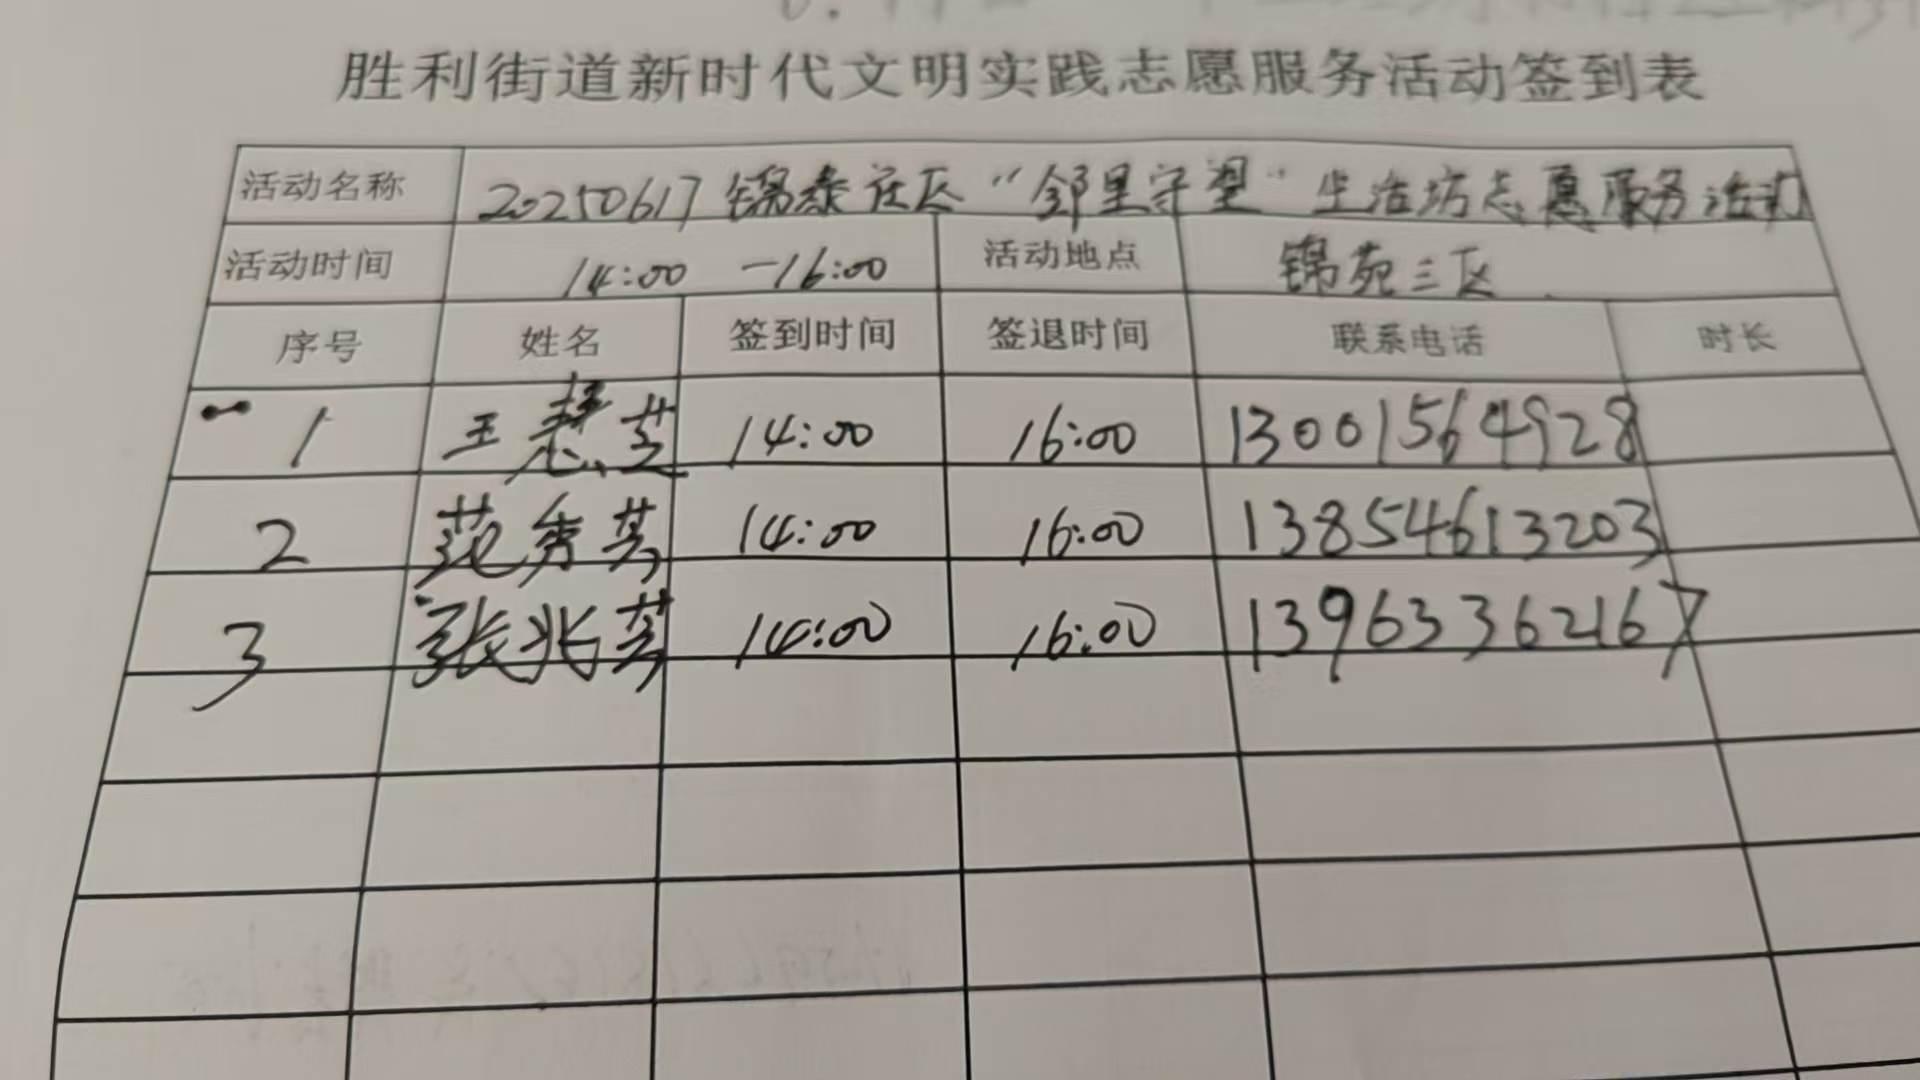 胜利街道新时代文明实践志愿服务活动签到表
活动名称 20250617锦泰社区“邻里守望”生活坊志愿服务活动
活动时间 14:00 —16:00 活动地点 锦苑三区
序号 姓名 签到时间 签退时间 联系电话 时长
1 王慧芝 14:00 16:00 13001564928
2 范秀英 14:00 16:00 13854613203
3 张兆英 14:00 16:00 13963362167